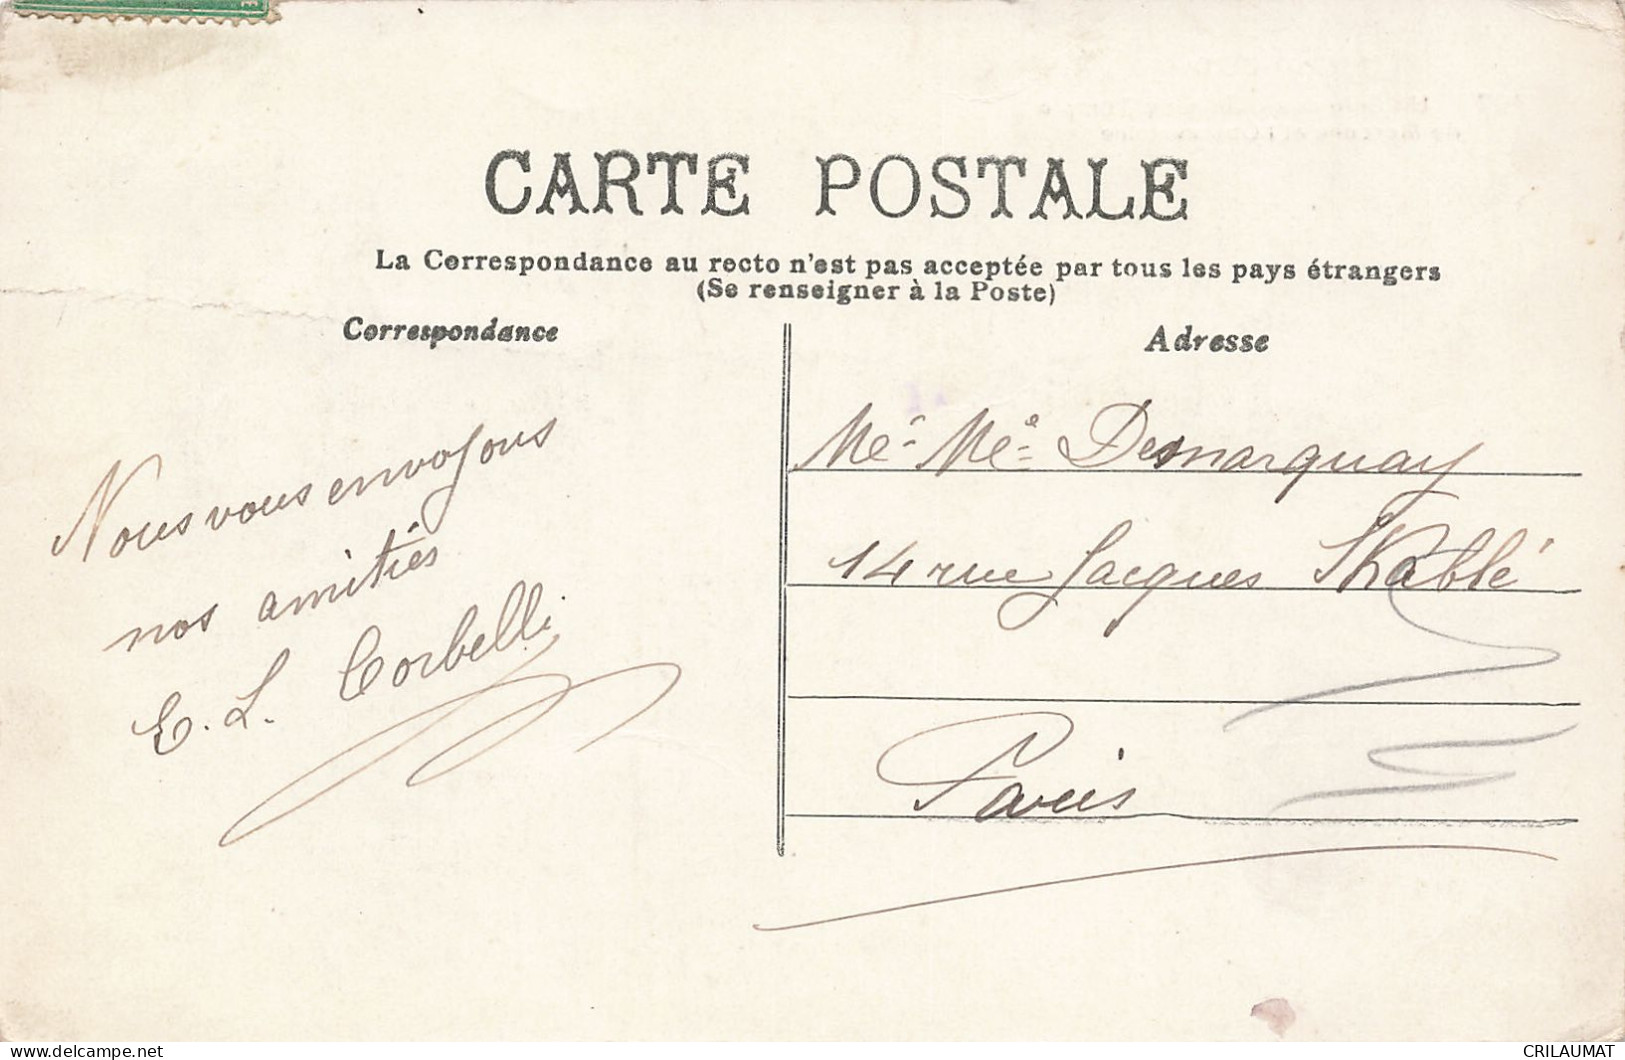 CARTE POSTALE
La Correspondance au recto n'est pas acceptée par tous les pays étrangers
(Se renseigner à la Poste)
Correspondance
Nous vous envoyons
nos amitiés
E. L. Corbelli
Adresse
Mr Me Desmarquay
14 rue Jacques Kablé
Paris
delcampe.net
CRILAUMAT